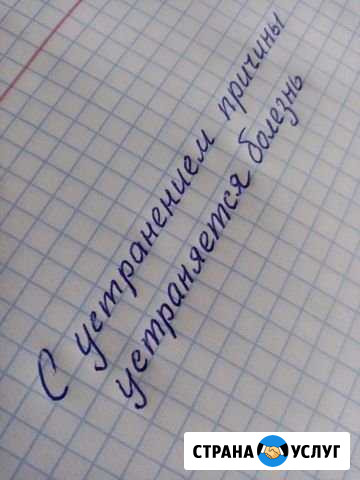 С устранением причины
устраняется болезнь
СТРАНА УСЛУГ